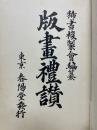 稀書複製會編纂
版畫禮讃
東京 春陽堂發行